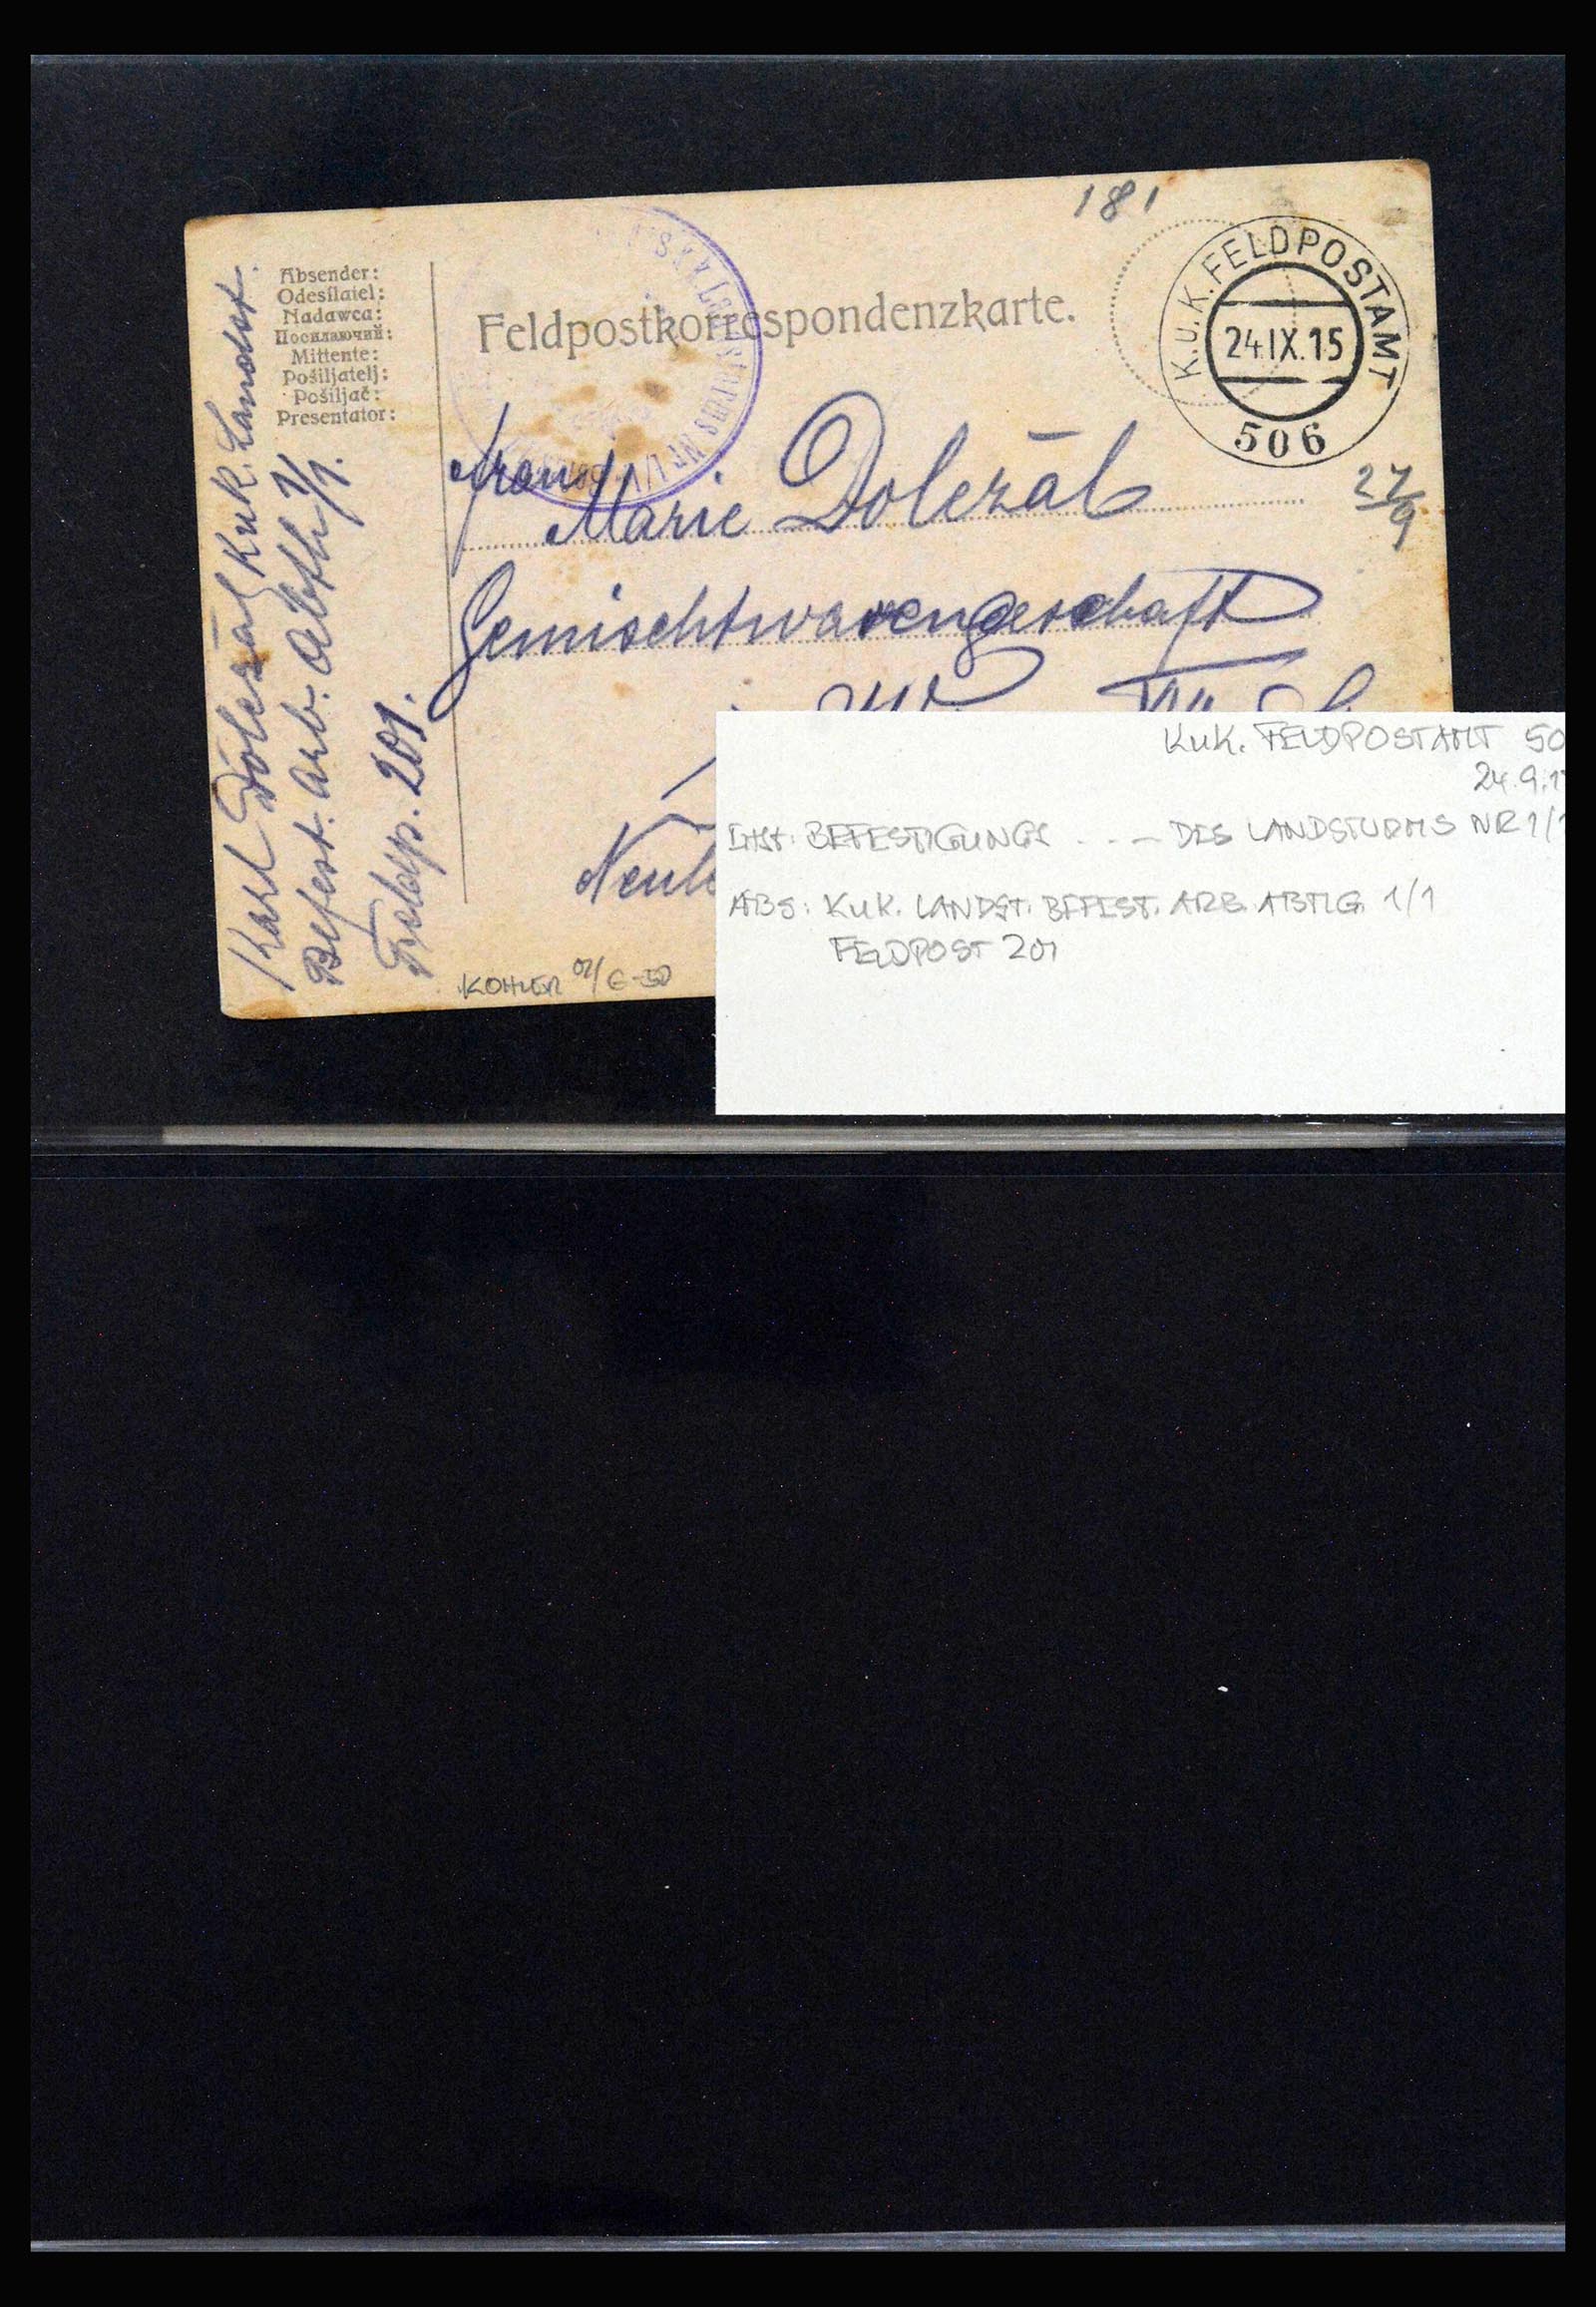 181
K.u.K. FELDPOSTAMT
24.IX.15
506
Absender:
Odesílatel:
Nadawca:
Посилаючий:
Mittente:
Pošiljatelj:
Pošiljač:
Presentator:
Feldpostkorrespondenzkarte.
Karl Doležal KuK. Landst.
Befest. Arb. Abth 1/1.
Feldp. 201.
Marie Doležál
27/9
Gemischtwarengeschäft
KOHLER 01/ €-50
KuK. FELDPOSTAMT 50
24.9.1
BEFESTIGUNGS . . - DES LANDSTURMS NR 1/1
ABS: KuK. LANDST. BEFEST. ARB. ABTLG. 1/1
FELDPOST 201